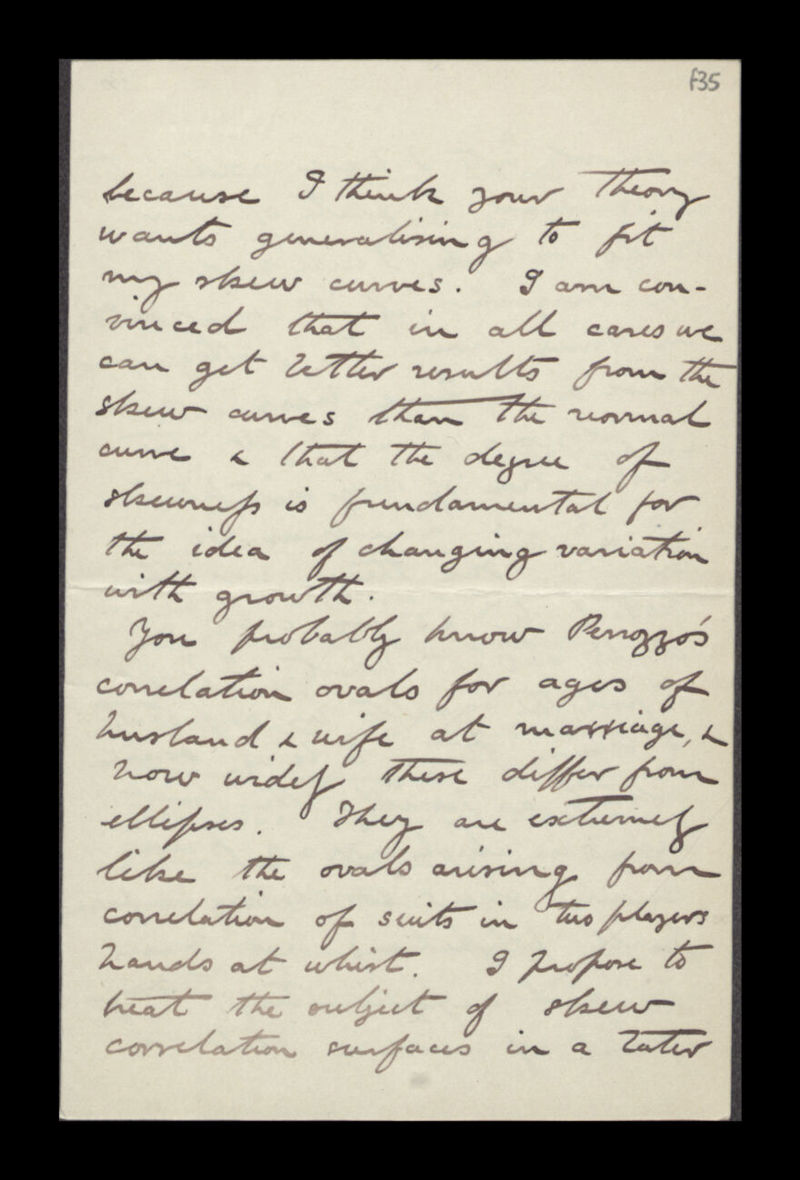 f35
because I think your theory
wants generalising to fit
my skew curves. I am con-
vinced that in all cases we
can get better results from the
skew curves than the normal
curve & that the degree of
skewness is fundamental for
the idea of changing variation
with growth.
You probably know Perozzo's
correlation ovals for ages of
husband & wife at marriage, &
how widely these differ from
ellipses. They are extremely
like the ovals arising from
correlation of suits in two players
hands at whist. I propose to
treat the subject of skew
correlation surfaces in a later